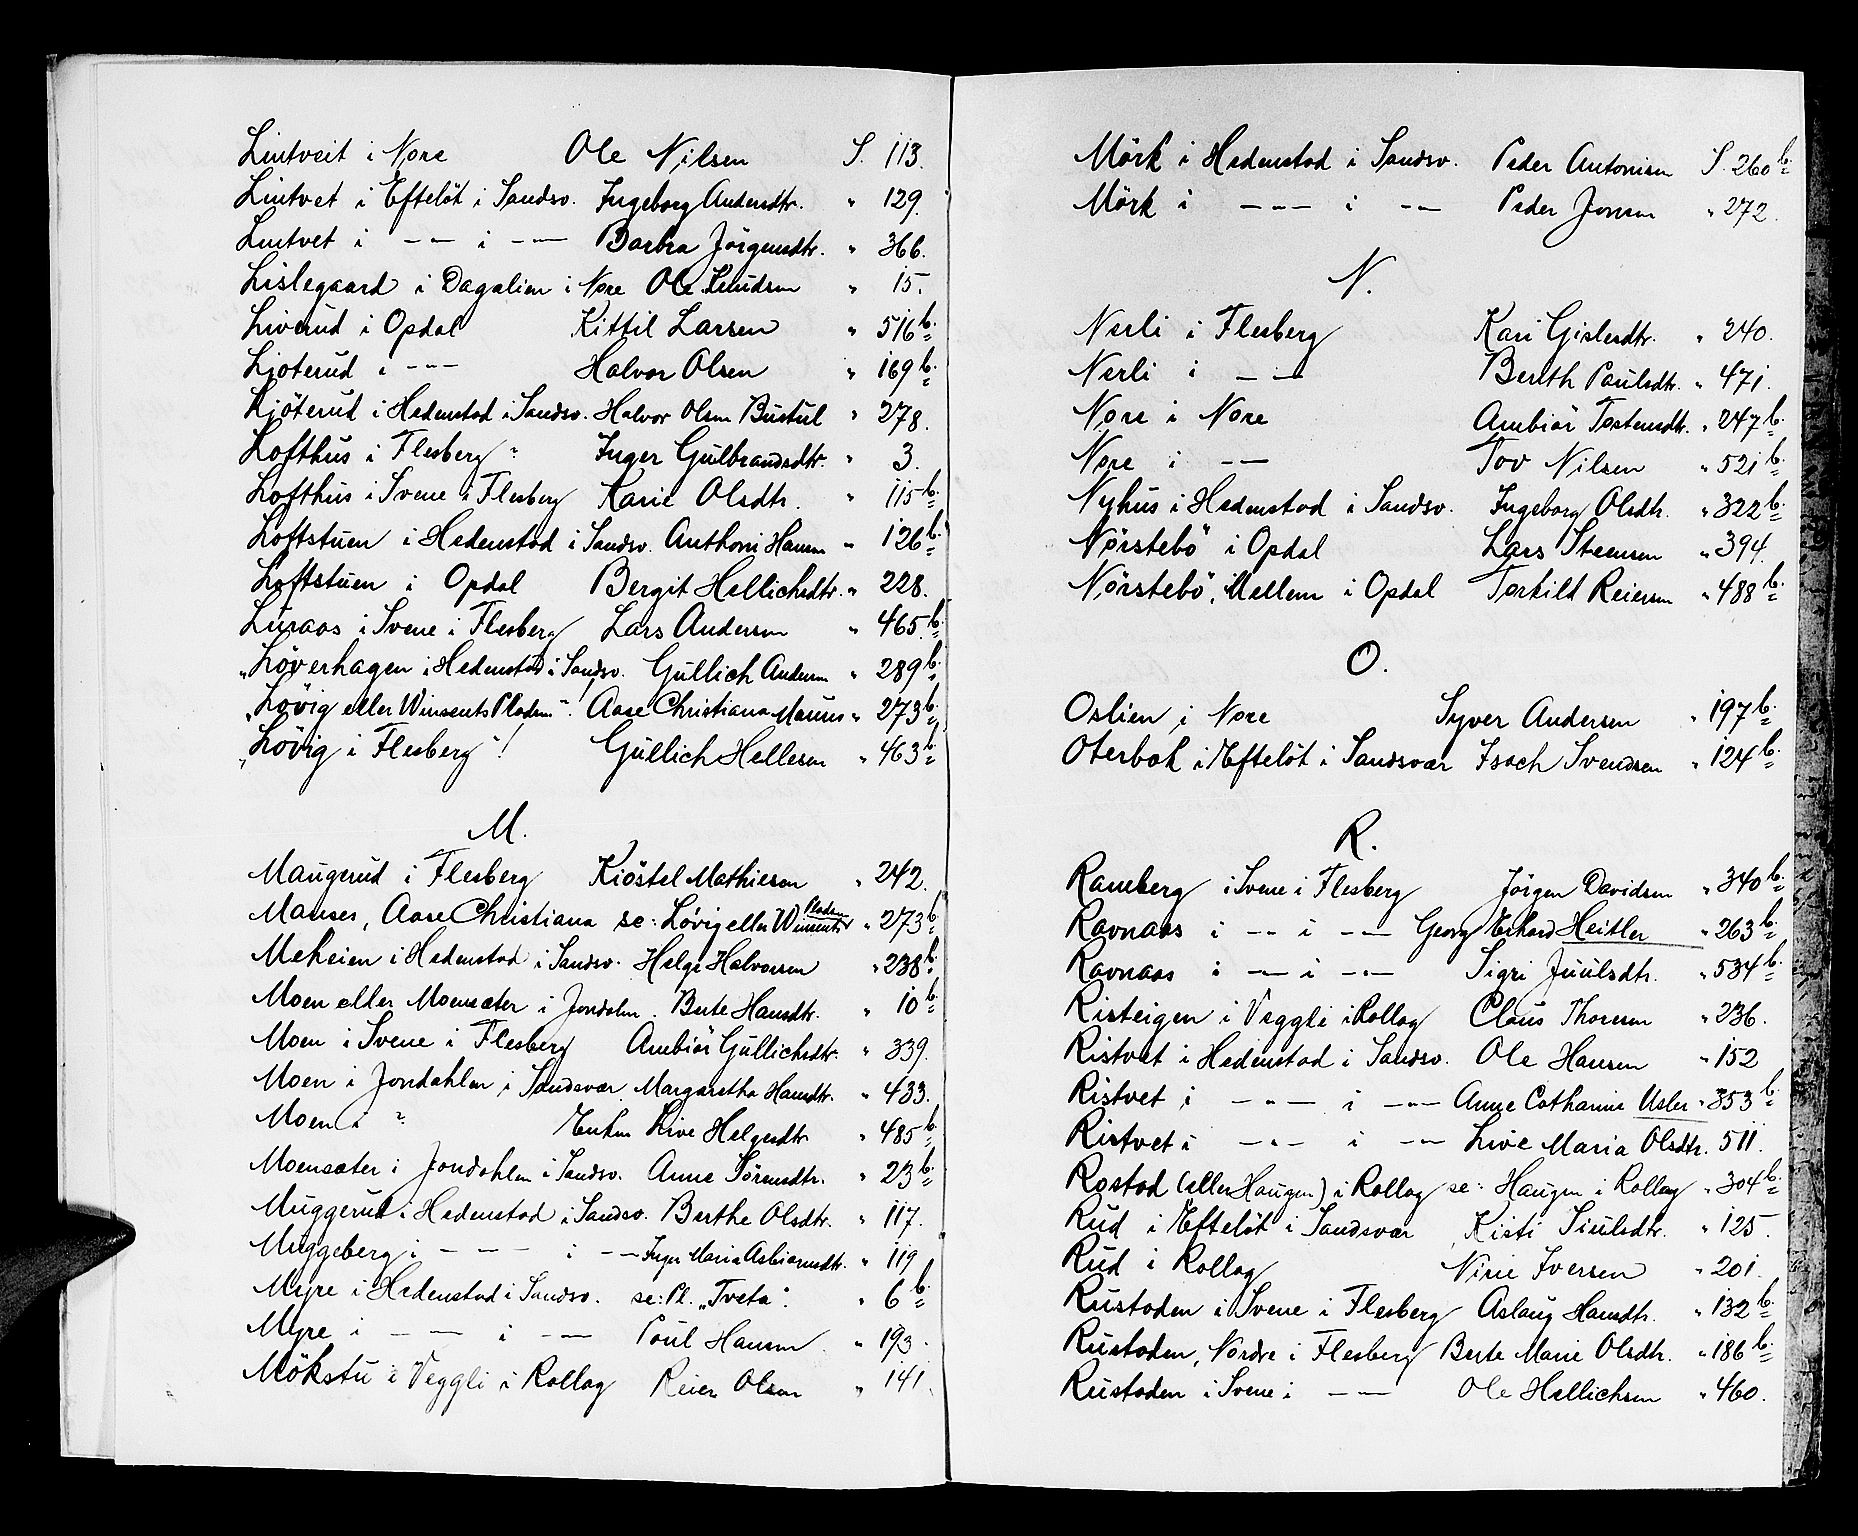 Lintveit i Nore Ole Nilsen S. 113.
Lintvet i Efteløt i Sandsv. Ingeborg Andersdtr. " 129.
Lintvet i -"- i -"- Barbra Jörgensdtr. " 366.
Lislegaard i Dagalien i Nore Ole Knudsen " 15.
Liverud i Opdal Kittil Larsen " 516 b.
Ljoterud i -"- Halvor Olsen " 169 b.
Ljöterud i Hedenstad i Sandsv. Halvor Olsen Bustul " 278.
Lofthus i Flesberg " Inger Gulbrandsdtr. " 3.
Lofthus i Svene i Flesberg Karie Olsdtr. " 115 b.
Loftstuen i Hedenstad i Sandsv. Anthoni Hansen " 126 b.
Loftstuen i Opdal Bergit Hellichsdtr. " 228.
Luraas i Svene i Flesberg Lars Andersen " 465 b.
"Löverhagen i Hedenstad i Sandsv. Gullich Andersen " 289 b.
"Lövig eller Winsents Pladsen". Aase Christiana Mauses " 273 b.
"Lövig i Flesberg"! Gullich Hellesen " 463 b.
M.
Maugerud i Flesberg Kiöstel Mathiesen " 242.
Mauses, Aase Christiana se: Lövig eller Winsents Pladsen " 273 b.
Meheien i Hedenstad i Sandsv. Helge Halvorsen " 238 b.
Moen eller Moensæter i Jondalen. Berte Hansdtr. " 10 b.
Moen i Svene i Flesberg Ambiör Gullichsdtr. " 339.
Moen i Jondahlen i Sandsvær. Margaretha Hansdtr. " 433.
Moen i " Enken Live Helgesdtr " 485 b.
Moensæter i Jondahlen i Sandsv. Anne Sörensdtr. " 23 b.
Muggerud i Hedenstad i Sandsv. Berthe Olsdtr. " 117.
Muggeberg i - - - i -- Inger Maria Asbiørnsdtr. " 119
Myre i Hedenstad i Sandsv. se: Pl. "Tveta". " 6 b.
Myre i - -- i -- Poul Hansen " 193.
Mökstu i Veggli i Rollag Reier Olsen " 141.
Mörk i Hedenstad i Sandsv. Peder Antonisen S. 260 b.
Mörk i -"- i -- Peder Jonsen " 272.
N.
Nerli i Flesberg Kari Gislesdtr. " 240.
Nerli i -- Berth Paulsdtr. " 471.
Nore i Nore Ambiör Tostensdtr. " 247 b.
Nore i -- Tov Nilsen " 521 b.
Nyhus i Hedenstad i Sandsv. Ingeborg Olsdtr. " 322 b.
Nörstebö i Opdal Lars Steensen " 394.
Nörstebö, Mellem i Opdal Torkild Reiersen " 488 b.
O.
Oslien i Nore Syver Andersen " 197 b.
Oterbæk i Efteløt i Sandsvær Isach Svendsen " 124 b.
R.
Ramberg i Svene i Flesberg Jörgen Davidsen " 340 b.
Ravnaas i -- i -- Georg Erhard Heitler " 263 b.
Ravnaas i -- i -- Sigri Juulsdtr. " 534 b.
Risteigen i Veggli i Rollag Claus Thoresen " 236.
Ristvet i Hedenstad i Sandsv. Ole Hansen " 152
Ristvet i -"- i -"- Anne Catharine Usler " 353 b.
Ristvet i -"- i -- Live Maria Olsdtr. 511.
Rostad (eller Haugen) i Rollag se: Haugen i Rollag " 304 b.
Rud i Efteløt i Sandsvær Kisti Siulsdtr. " 125.
Rud i Rollag Nirie Iversen " 201.
Rustaden i Svene i Flesberg Aslaug Hansdtr. " 132 b.
Rustaden, Nordre i Flesberg Berte Marie Olsdtr. " 186 b.
Rustaden i Svene i -- Ole Hellichsen " 460.